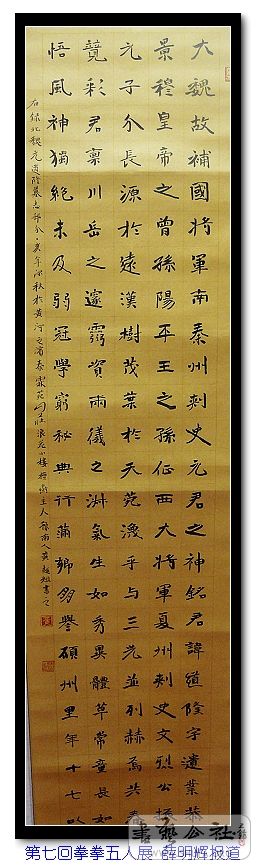 大魏故補國將軍南秦州刺史元君之神銘君諱道隆字遺業恭
景穆皇帝之曾孫陽平王之孫征西大將軍夏州刺史文烈公
元子分長源於遠漢樹茂葉於天苑邈乎与三光並列赫
覽彩君稟川岳之邃靈資兩儀之淋氣生如秀異體草常童長如
悟風神獨絶未及弱冠學窮秘典行蒲鄉譽碩州里年十七
右録北魏元道隆墓志部分
書之
書藝公社
第七回拳拳五人展 薛明辉报道